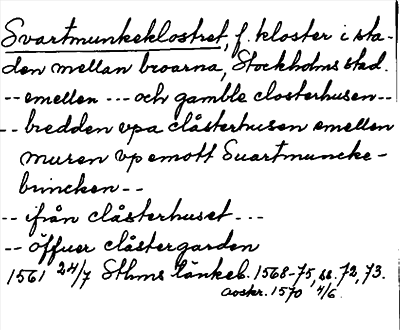 Svartmunkeklostret, f. kloster i sta-
den mellan broarna, Stockholms stad.
-- emellen --- och gamble closterhusen--
-- bredden vpa clåsterhusen emellen
muren vp emott Suartmuncke-
brincken --
-- ifrån clåsterhuset ---
-- öffuer clåstergarden
1561 24/7 Sthms tänkeb. 1568-75, ss. 72, 73.
avskr. 1570 4/6.